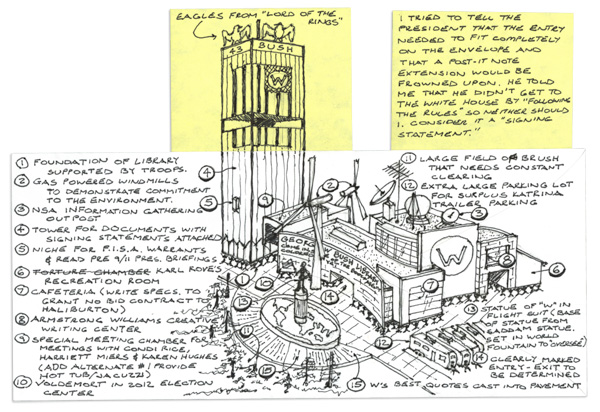 EAGLES FROM "LORD OF THE
RINGS"
43 BUSH
W
I TRIED TO TELL THE
PRESIDENT THAT THE ENTRY
NEEDED TO FIT COMPLETELY
ON THE ENVELOPE AND
THAT A POST-IT NOTE
EXTENSION WOULD BE
FROWNED UPON. HE TOLD
ME THAT HE DIDN'T GET TO
THE WHITE HOUSE BY "FOLLOWING
THE RULES" SO NEITHER SHOULD
I. CONSIDER IT A "SIGNING
STATEMENT."
① FOUNDATION OF LIBRARY
SUPPORTED BY TROOPS.
② GAS POWERED WINDMILLS
TO DEMONSTRATE COMMITMENT
TO THE ENVIRONMENT.
③ NSA INFORMATION GATHERING
OUTPOST
④ TOWER FOR DOCUMENTS WITH
SIGNING STATEMENTS ATTACHED
⑤ NICHE FOR F.I.S.A. WARRANTS
& READ PRE 9/11 PRES. BRIEFINGS
⑥ TORTURE CHAMBER KARL ROVE'S
RECREATION ROOM
⑦ CAFETERIA (WRITE SPECS. TO
GRANT NO BID CONTRACT TO
HALIBURTON)
⑧ ARMSTRONG WILLIAMS CREATIVE
WRITING CENTER
⑨ SPECIAL MEETING CHAMBER FOR
MEETINGS WITH CONDI RICE,
HARRIETT MIERS & KAREN HUGHES
(ADD ALTERNATE #1 PROVIDE
HOT TUB/JACUZZI)
⑩ VOLDEMORT IN 2012 ELECTION
CENTER
⑪ LARGE FIELD OF BRUSH
THAT NEEDS CONSTANT
CLEARING
⑫ EXTRA LARGE PARKING LOT
FOR SURPLUS KATRINA
TRAILER PARKING
GEORGE BUSH
W
⑬ STATUE OF "W" IN
FLIGHT SUIT (BASE
OF STATUE FROM
SADDAM STATUE.
SET IN WORLD
FOUNTAIN TO OVERSEE)
⑭ CLEARLY MARKED
ENTRY - EXIT TO
BE DETERMINED
⑮ W'S BEST QUOTES CAST INTO PAVEMENT